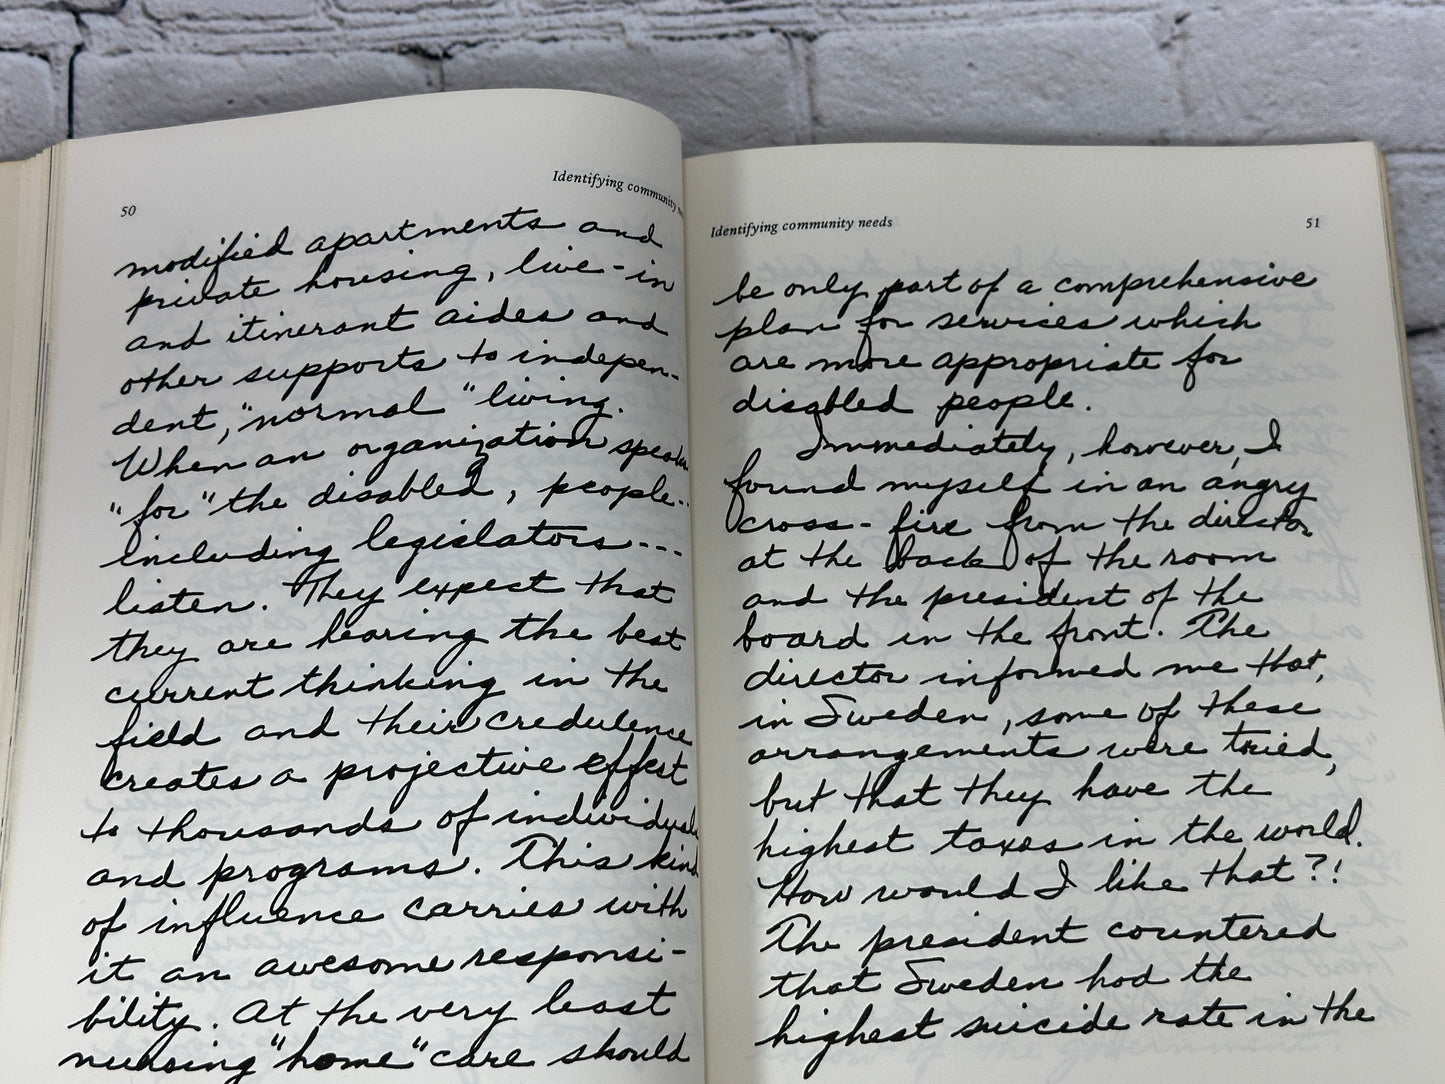 50
Identifying community
modified apartments and
private housing, live-in
and itinerant aides and
other supports to indepen-
dent, "normal" living.
When an organization speaks
"for" the disabled, people--
including legislators---
listen. They expect that
they are hearing the best
current thinking in the
field and their credulence
creates a projective effect
to thousands of individuals
and programs. This kind
of influence carries with
it an awesome responsi-
bility. At the very least
nursing "home" care should
Identifying community needs
51
be only part of a comprehensive
plan for services which
are more appropriate for
disabled people.
Immediately, however, I
found myself in an angry
cross-fire from the director
at the back of the room
and the president of the
board in the front. The
director informed me that,
in Sweden, some of these
arrangements were tried,
but that they have the
highest taxes in the world.
How would I like that?!
The president countered
that Sweden had the
highest suicide rate in the